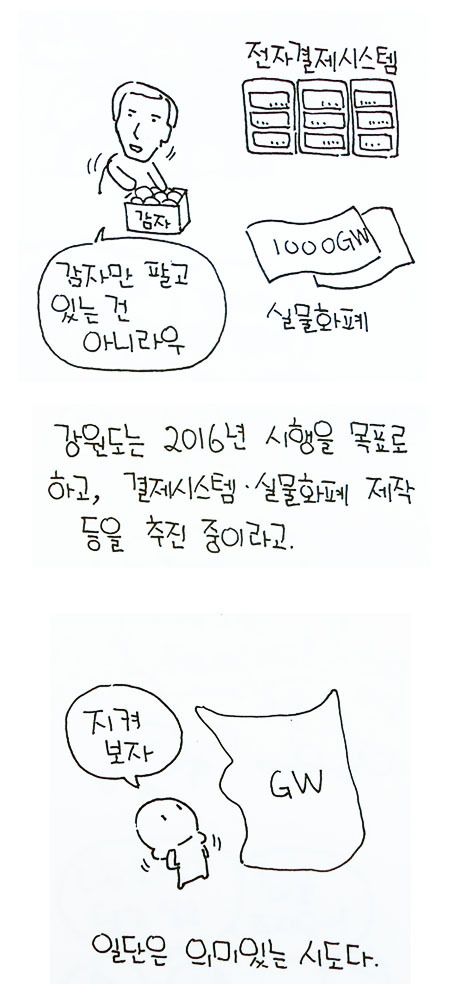 전자결제시스템
감자
1000GW
실물화폐
감자만 팔고
있는 건
아니라우
강원도는 2016년 시행을 목표로
하고, 결제시스템·실물화폐 제작
등을 추진 중이라고.
지켜
보자
GW
일단은 의미있는 시도다.